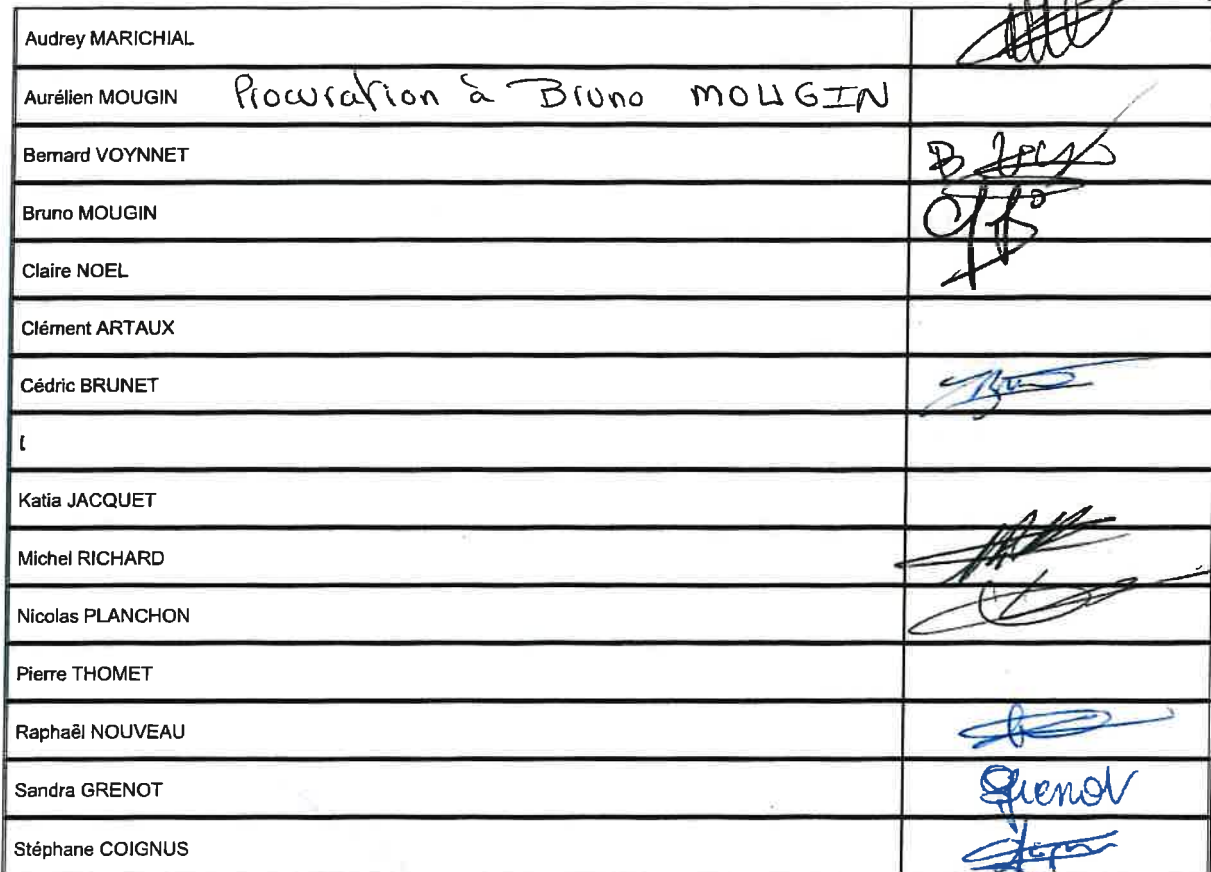 Audrey MARICHIAL
Aurélien MOUGIN Procuration à Bruno MOUGIN
Bernard VOYNNET
Bruno MOUGIN
Claire NOEL
Clément ARTAUX
Cédric BRUNET
Katia JACQUET
Michel RICHARD
Nicolas PLANCHON
Pierre THOMET
Raphaël NOUVEAU
Sandra GRENOT Grenot
Stéphane COIGNUS